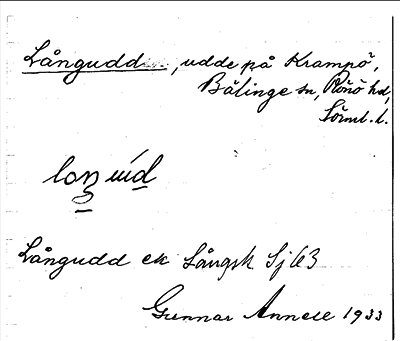 Långudd, udde på Krampö,
Bälinge sn, Rönö hd,
Sörml. l.
Långudd ek Långsk Sj 63
Gunnar Annell 1933